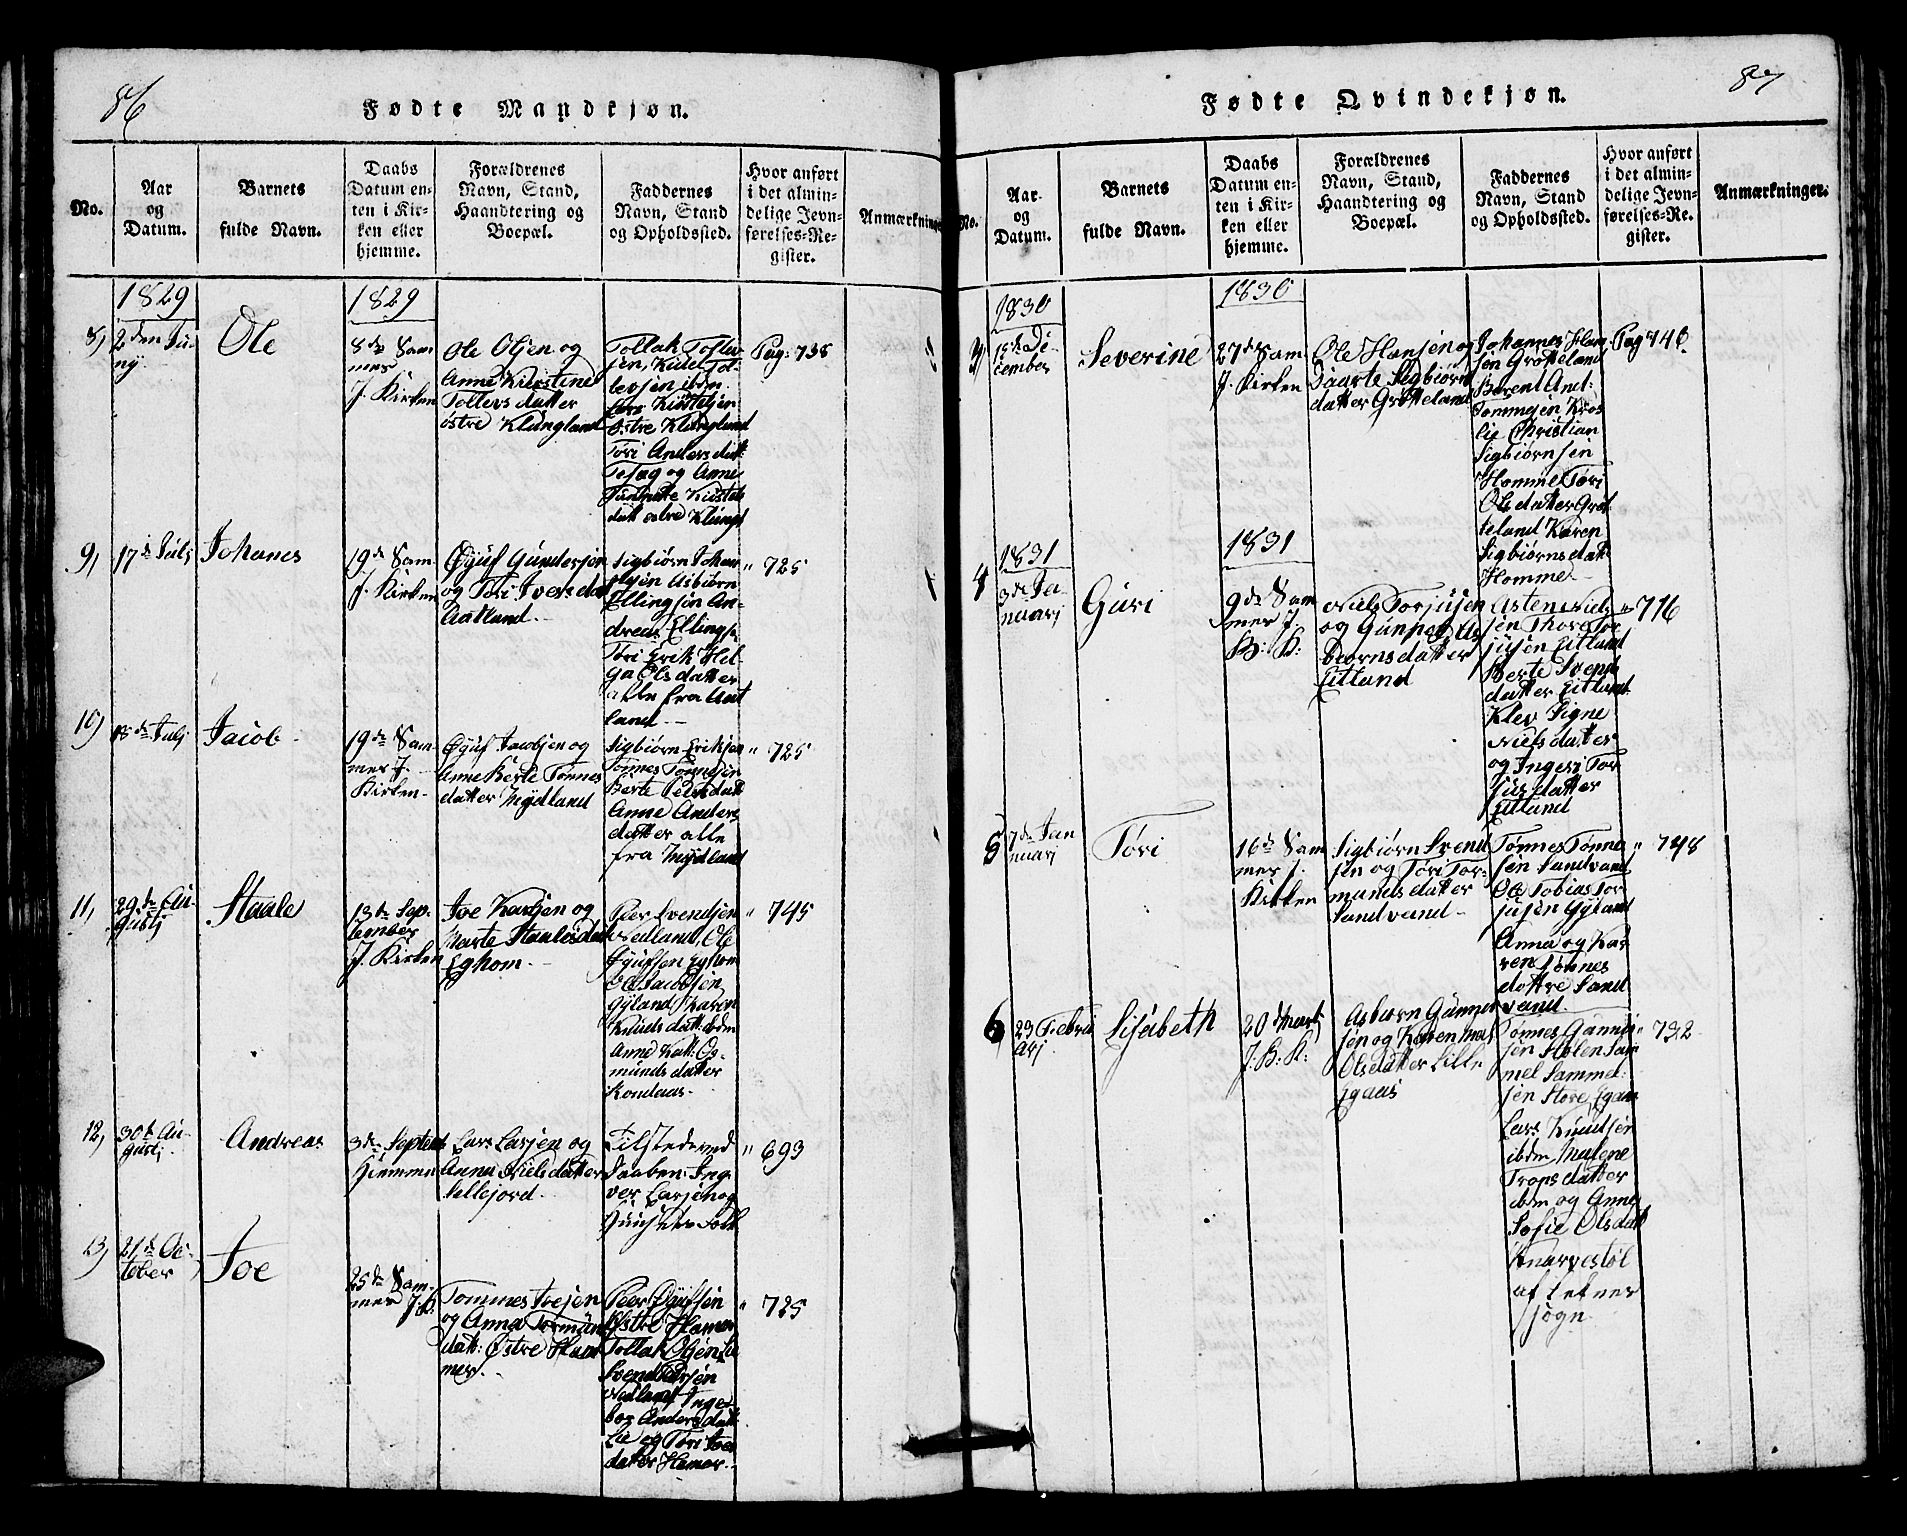 86
Fødte Mandkjøn.
No.
Aar
og
Datum.
Barnets
fulde Navn.
Daabs
Datum en-
ten i Kir-
ken eller
hjemme.
Forældrenes
Navn, Stand,
Haandtering og
Boepæl.
Faddernes
Navn, Stand
og Opholdssted.
Hvor anført
i det almin-
delige Jevn-
førelses-Re-
gister.
Anmærkning
1829
1829
8,
2den Ju-
ny.
Ole
8de Sam
mer
J. Kirken
Ole Olsen og
Anne Kirstine
Tollevs datter
østre Klungland
Tollak Tollev-
sen, Knud Tol-
levsen ibdm
Lars
Østre Klungland
Tøri Anders dat:
og Anne
dat østre Klungl
Pag: 738
9,
17de Julj
Johanes
19de Sam
J. Kirken
Øyuf Gundersen
og Tøri Ivers dat
Aatland.
Sigbiørn Johan
Asbiørn
Ellingsen An-
dreas Ellings.
Tøri Erik Hel-
ga Olsdatter
alle fra Aat
land.
" 725
10)
18de Julj
Jacob
19de Sam-
mer J.
Kirken
Øyuf Jacobsen og
Anne Berte Tønnes
datter Mydland
Sigbiørn Eriksen
Tønnes Tønnesen
Berte Peersdatt
Anne Anders
datter alle
fra Mydland
" 725
11,
29de Au-
gustj
Staale
13de Sep-
tember
J. Kirken
Joe
og
Marte Staalesdatt
Eghom.
Peer Svendsen
Nedland, Ole
Øyufsen Eghom
Ole Jacobsen
Gyland, Karen
Knuds datt ibdm
Anne Katt: Os-
munds datter
" 745
12,
30te Au-
gustj
Andreas
3de Septem
Hiemme
Lars Larsen og
Anna Niels datter
Lillejord.
Tilstede ved
Daaben: Ing-
ver Larsen og
Huusets Folk
" 693
13,
21de Oc-
tober
Joe
25de Sam-
mer J.K:
Tommes Joesen
og Anna Tormun
datt: Østre Ham
mer.
Peer Øyufsen
Østre Hamer
Tollak Olsen
Svend
Nedland Inge-
bor Anders datt
Lie og Tøri Joes
datter Hamer.
" 725
87
Fødte Qvindekjøn.
No.
Aar
og
Datum.
Barnets
fulde Navn.
Daabs
Datum en-
ten i Kir-
ken eller
hjemme.
Forældrenes
Navn, Stand,
Haandtering og
Boepæl.
Faddernes
Navn, Stand
og Opholdssted.
Hvor anført
i det almin-
delige Jevn-
førelses-Re-
gister.
Anmærkninger.
1830
1830
3,
15de De-
cember
Severine
27de Sam
J. Kirken
Ole Hansen og
Daarte Sigbiørn
datter Grøteland
Johannes Han
sen Grøteland
Berent And:
Tommesen Krøs
lie Christian
Sigbiørnsen
Homme Tøri
Ols datter Grøt
teland Karen
Sigbiørns datt
Homme
Pag 746
1831
1831
4
3de Ja-
nuarj
Guri
9de Sam
mer J.
H: K:
Niels Torjusen
og Gunner As
biørns datter
Eitland
Asten Niels
sen Thore Tor
jusen Eitland
Berte Svens
datter Eitland
Klev Signe
Niels datter
og Ingeri Tor
jus datter
Eitland
" 716
5
7de Jan
nuarj
Tøri
16de Sam
mer J.
Kirken
Sigbiørn Svend
sen og Tøri Tor-
munds datter
Sandvand
Tønnes Tønne
sen Sandvand
Ole Tobias Tor
jusen Gyland
Anna og Kar
ren Tønnes
døttre Sand
vand.
" 748
6
23 Februa
arj
Lisabeth
20 Martj
J. H: K:
Asbiørn Gunner
sen og Karen
Olsdatter Lille
Egaas
Tønnes Gunner
sen Stølen Sam
mel Sammel-
sen Store Egaas
Lars Knudsen
ibdm Malene
datter
ibdm og Anne
Sofie Olsdatt
Knarvestøl
af Lefner
sogn
" 732